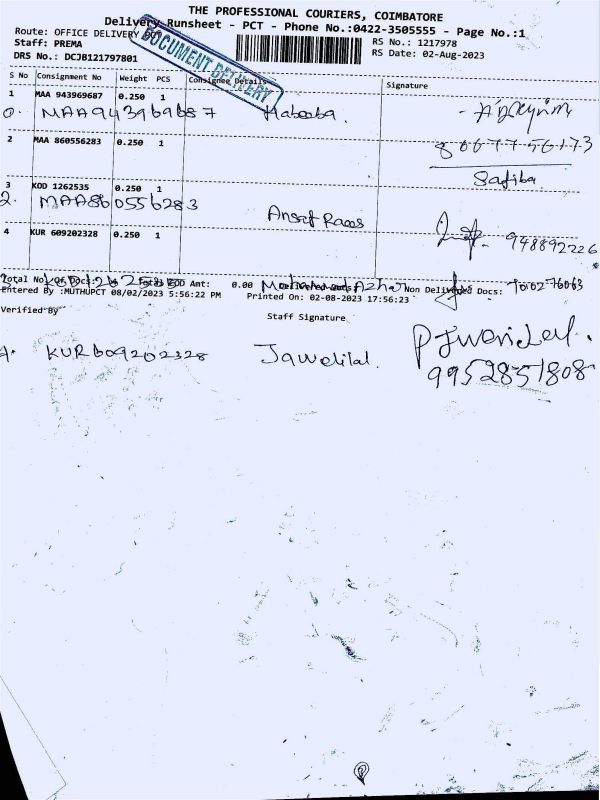 THE PROFESSIONAL COURIERS, COIMBATORE
Delivery Runsheet - PCT - Phone No.:0422-3505555 - Page No.:1
Route: OFFICE DELIVERY PCT
RS No.: 1217978
Staff: PREMA
RS Date: 02-Aug-2023
DRS No.: DCJB121797801
DOCUMENT DELIVERY
S No Consignment No Weight PCS Consignee Details Signature
1 MAA 943969687 0.250 1
MAA943969687 Habeeba.
2 MAA 860556283 0.250 1
Safiba
3 KOD 1262535 0.250 1
2. MAA860556283
4 KUR 609202328 0.250 1
948892226
Total No. Of Docs: Total COD Amt: 0.00 Non Delivered Docs:
Mohammed Azhar
Entered By :MUTHUPCT 08/02/2023 5:56:22 PM Printed On: 02-08-2023 17:56:23
Verified By
Staff Signature
4. KUR609202328 Jawalilal.
9952851808